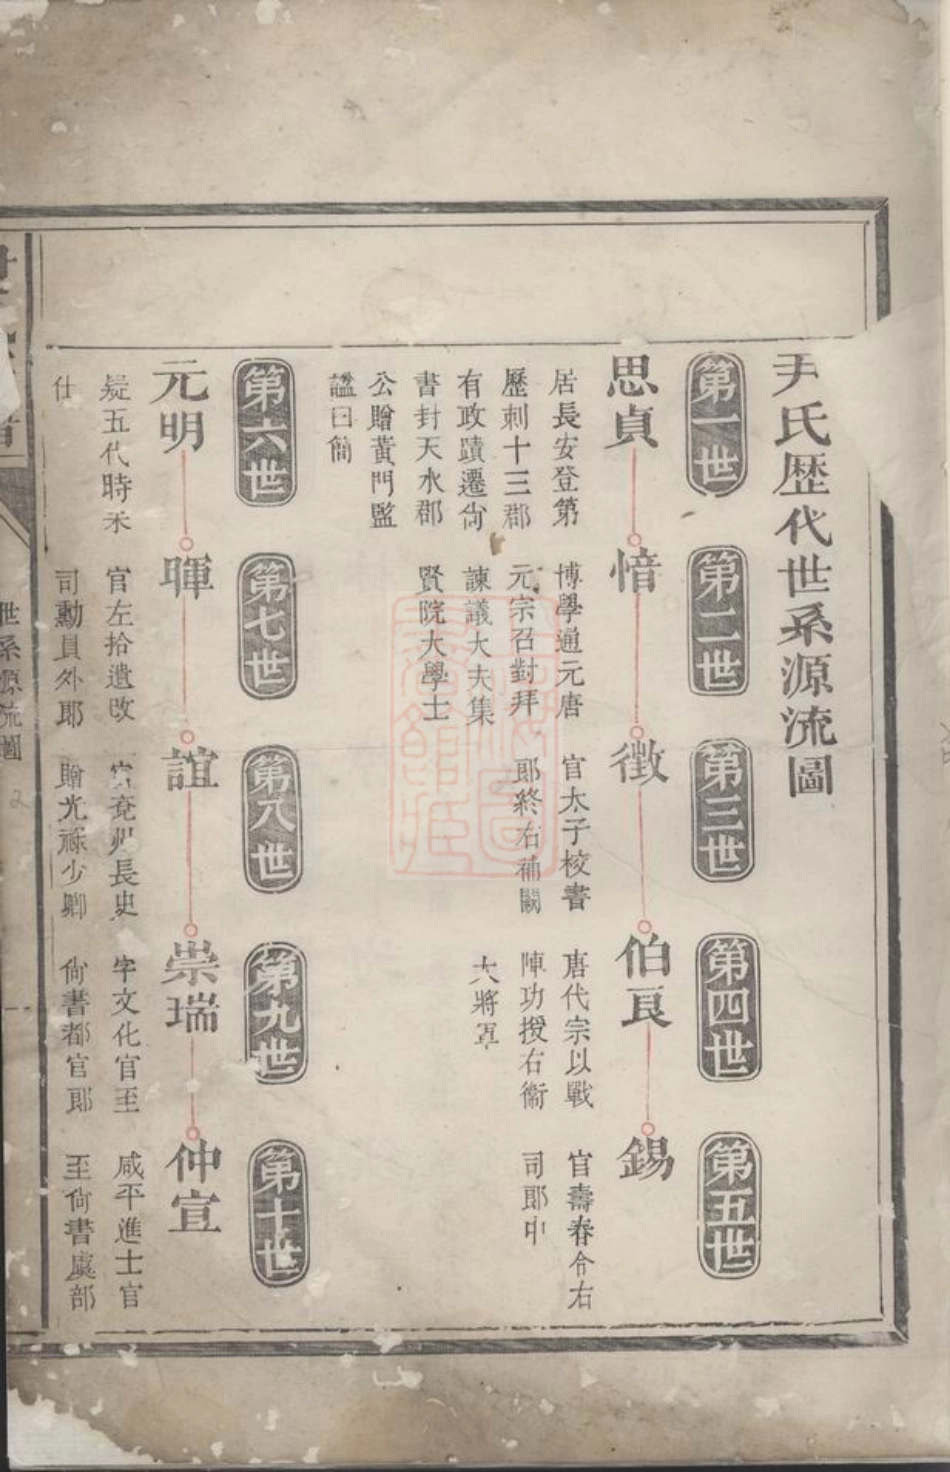 尹氏歴代世系源流圖
第一世
思貞
居長安登第
歷刺十三郡
有政蹟遷尙
書封天水郡
公贈黃門監
諡曰簡
第二世
愔
博學通元唐
元宗召對拜
諫議大夫集
賢院大學士
第三世
徴
官太子校書
郎終右補闕
第四世
伯良
唐代宗以戰
陣功授右衞
大將軍
第五世
錫
官壽春令右
司郎中
第六世
元明
疑五代時未
仕
第七世
暉
官左拾遺改
司勳員外郎
第八世
誼
官兗州長史
贈光祿少卿
第九世
崇瑞
字文化官至
尙書都官郎
第十世
仲宣
咸平進士官
至尙書虞部
世系源流圖